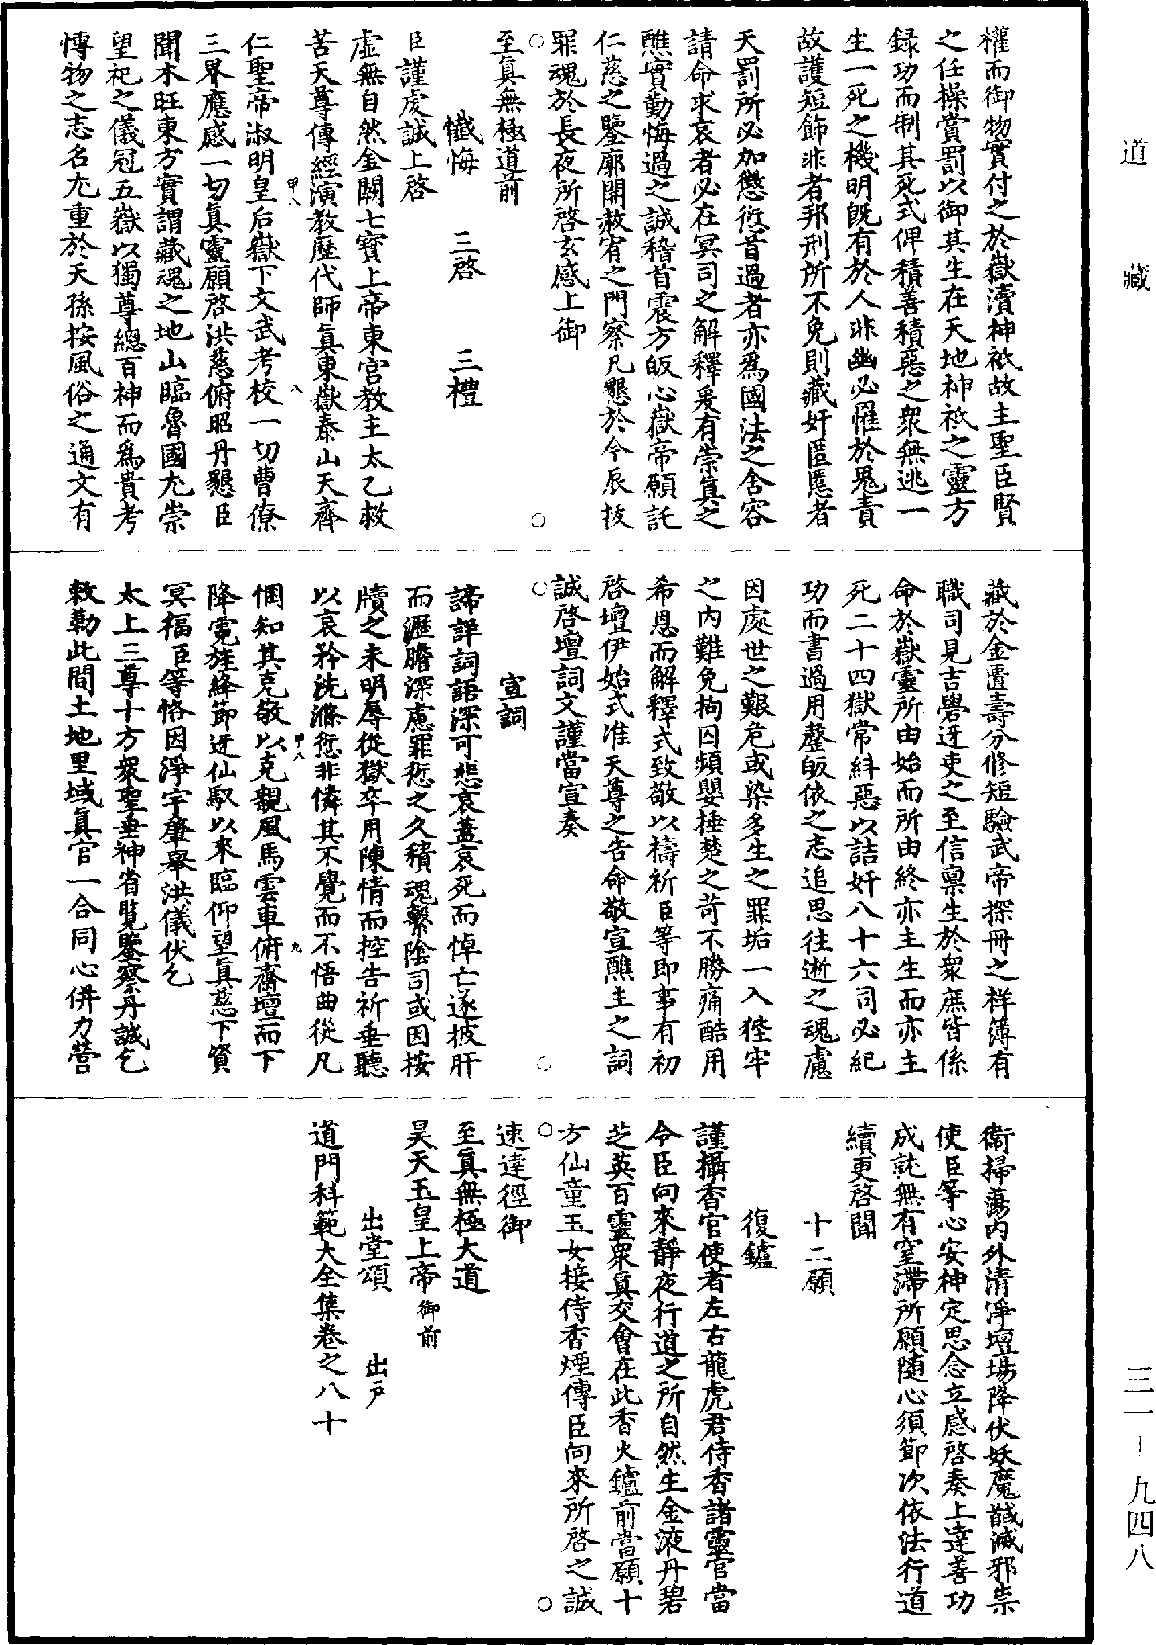 道藏
三一－九四八
權而御物實付之於嶽瀆神祇故主聖臣賢
之任操賞罰以御其生在天地神祇之靈方
録功而制其死式俾積善積惡之衆無逃一
生一死之機明既有於人非幽必罹於鬼責
故護短飾非者邦刑所不免則藏奸匿慝者
天罰所必加懲愆首過者亦爲國法之含容
請命求哀者必在冥司之解釋爰有崇眞之
醮實勤悔過之誠稽首震方皈心嶽帝願託
仁慈之鑒廓開赦宥之門察凡懇於今辰拔
罪魂於長夜所啓玄感上御
○○
至眞無極道前
懺悔　三啓　三禮
臣謹虔誠上啓
虛無自然金闕七寶上帝東宮教主太乙救
苦天尊傳經演教歷代師眞東嶽泰山天齊
甲八　八
仁聖帝淑明皇后嶽下文武考校一切曹僚
三界應感一切眞靈願啓洪慈俯昭丹懇臣
聞木旺東方實謂藏魂之地山臨魯國尤崇
望祀之儀冠五嶽以獨尊總百神而爲貴考
愽物之志名尤重於天孫按風俗之通文有
藏於金匱壽分修短驗武帝探冊之祥簿有
職司見吉礜迓吏之至信禀生於衆庶皆係
命於嶽靈所由始而所由終亦主生而亦主
死二十四獄常糾惡以詰奸八十六司必紀
功而書過用罄皈依之志追思往逝之魂慮
因處世之艱危或染多生之罪垢一入狴牢
之内難免拘囚頻嬰捶楚之苛不勝痛酷用
希恩而解釋式致敬以禱祈臣等即事有初
啓壇伊始式准天尊之告命敬宣醮主之詞
誠啓壇詞文謹當宣奏
○○
宣詞
諦詳詞語深可悲哀蓋哀死而悼亡遂披肝
而瀝膽深慮罪愆之久積魂繫陰司或因按
牘之未明辱從獄卒用陳情而控告祈垂聽
以哀矜洗滌愆非憐其不覺而不悟曲從凡
甲八　九
悃知其克敬以克親風馬雲車俯齋壇而下
降霓旌絳節迓仙馭以來臨仰望眞慈下資
冥福臣等恪因淨宇肇舉洪儀伏乞
太上三尊十方衆聖垂神省覽鑒察丹誠乞
敕勒此間土地里域眞官一合同心併力營
衞掃蕩内外清淨壇場降伏妖魔馘滅邪祟
使臣等心安神定思念立感啓奏上達善功
成就無有窒滯所願隨心須節次依法行道
續更啓聞
十二願
復鑪
謹攝香官使者左右龍虎君侍香諸靈官當
令臣向來靜夜行道之所自然生金液丹碧
芝英百靈衆眞交會在此香火鑪前當願十
方仙童玉女接侍香煙傳臣向來所啓之誠
○○
速達徑御
至眞無極大道
昊天玉皇上帝御前
出堂頌　出戶
道門科範大全集卷之八十